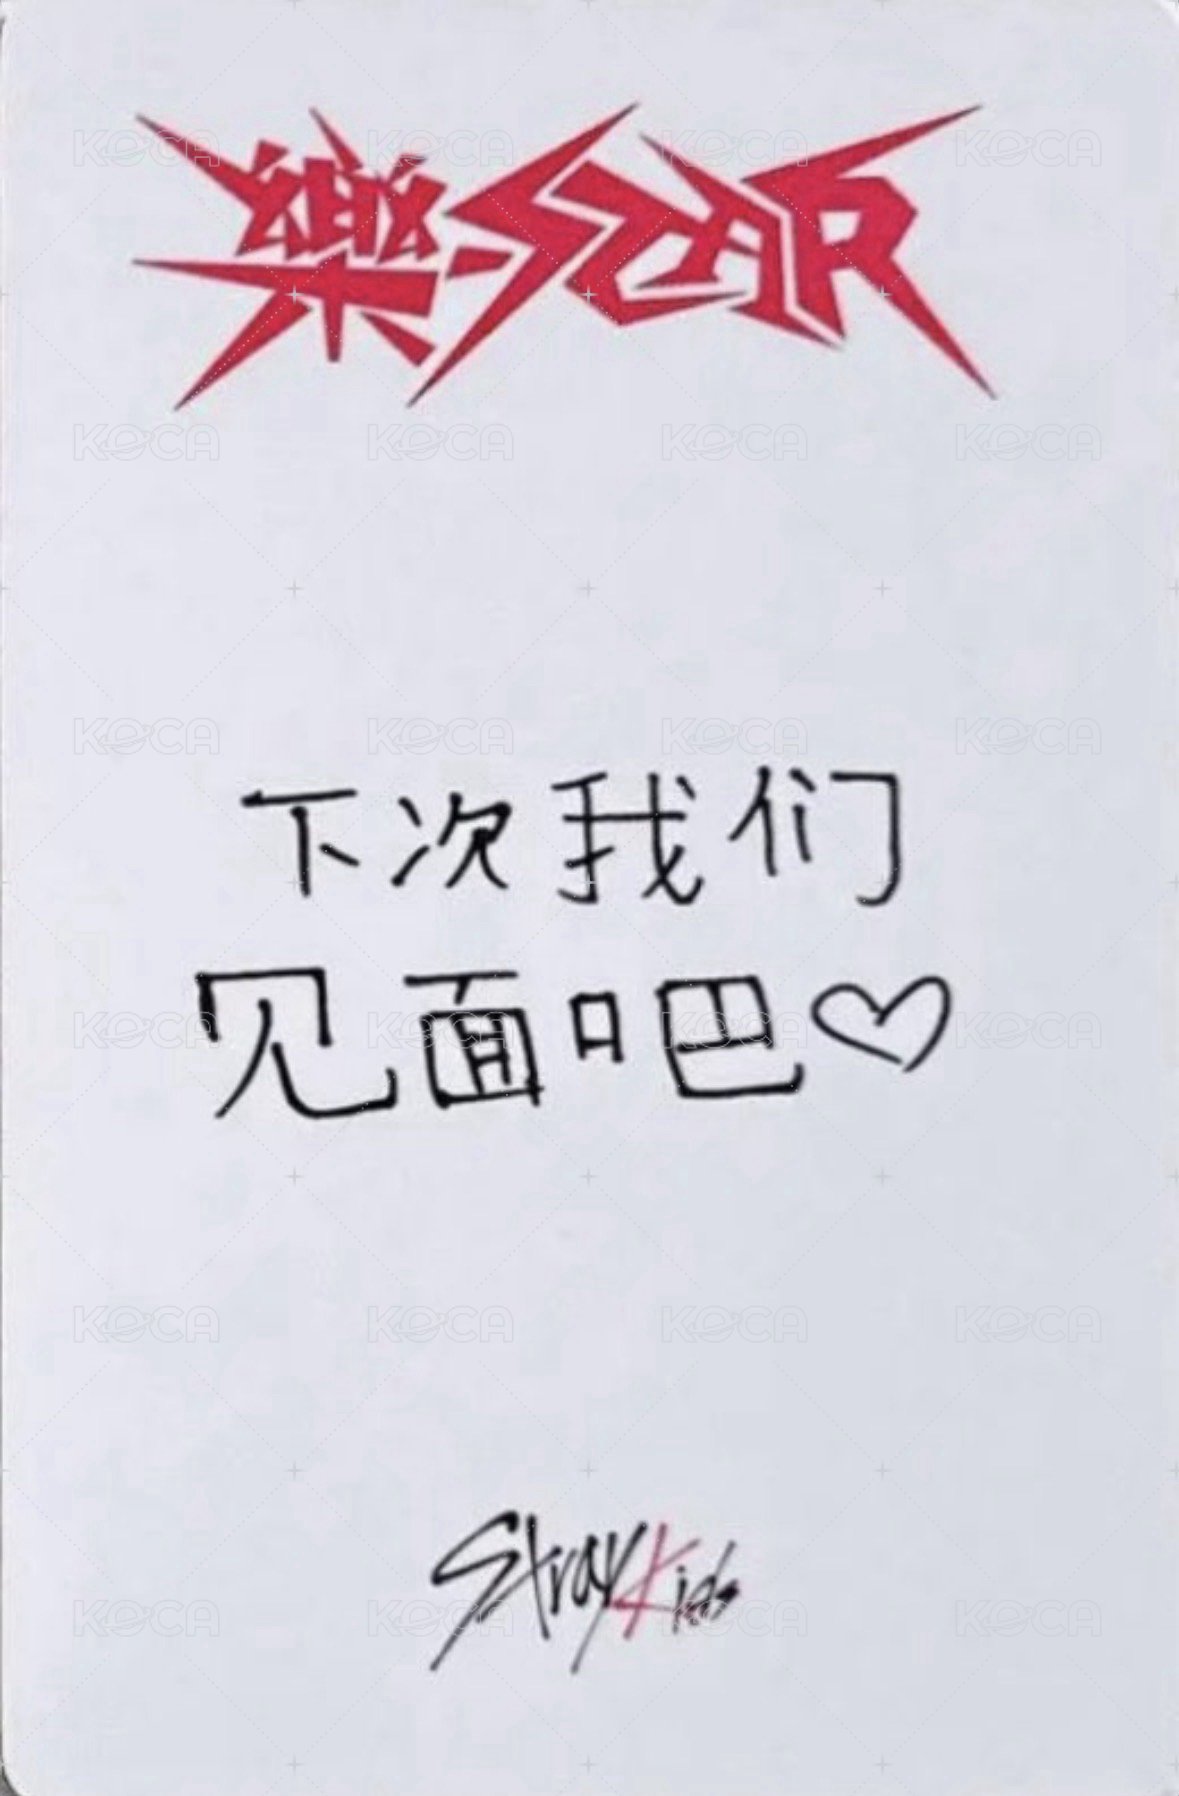 樂-STAR
下次我们
见面吧♡
Stray Kids
KOCA